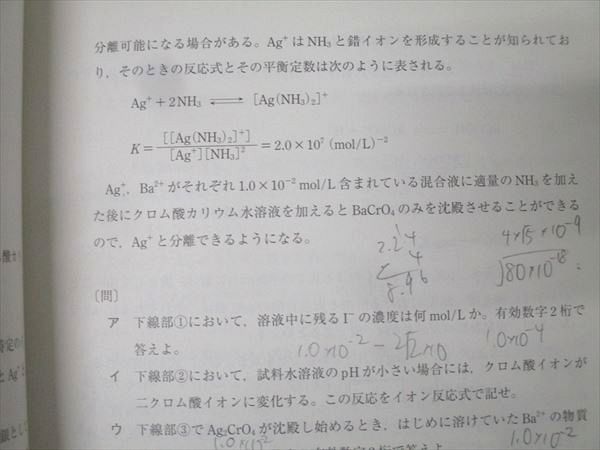 分離可能になる場合がある。Ag⁺はNH₃と錯イオンを形成することが知られてお
り，そのときの反応式とその平衡定数は次のように表される。
Ag⁺＋2NH₃ ⇄ [Ag(NH₃)₂]⁺
K = [[Ag(NH₃)₂]⁺] / [Ag⁺][NH₃]² = 2.0×10⁷ (mol/L)⁻²
Ag⁺, Ba²⁺がそれぞれ1.0×10⁻² mol/L 含まれている混合液に適量のNH₃を加え
た後にクロム酸カリウム水溶液を加えるとBaCrO₄のみを沈殿させることができる
ので，Ag⁺と分離できるようになる。
2.24
4
8.96
4×√5×10⁻⁹
√80×10⁻¹⁸
〔問〕
ア 下線部①において，溶液中に残るI⁻の濃度は何mol/Lか。有効数字2桁で
答えよ。
1.0×10⁻² − 2√2×10
1.0×10⁻⁴
イ 下線部②において，試料水溶液のpHが小さい場合には，クロム酸イオンが
二クロム酸イオンに変化する。この反応をイオン反応式で記せ。
ウ 下線部③でAg₂CrO₄が沈殿し始めるとき，はじめに溶けていたBa²⁺の物質
1.0×10⁻²
1.0×10⁻²